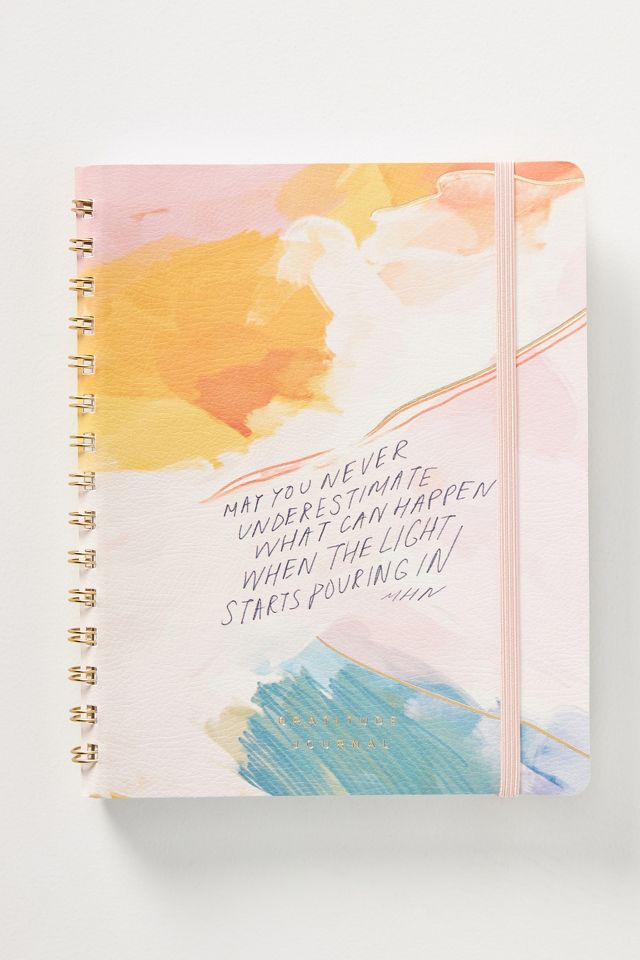 MAY YOU NEVER
UNDERESTIMATE
WHAT CAN HAPPEN
WHEN THE LIGHT
STARTS POURING IN
MHN
GRATITUDE
JOURNAL